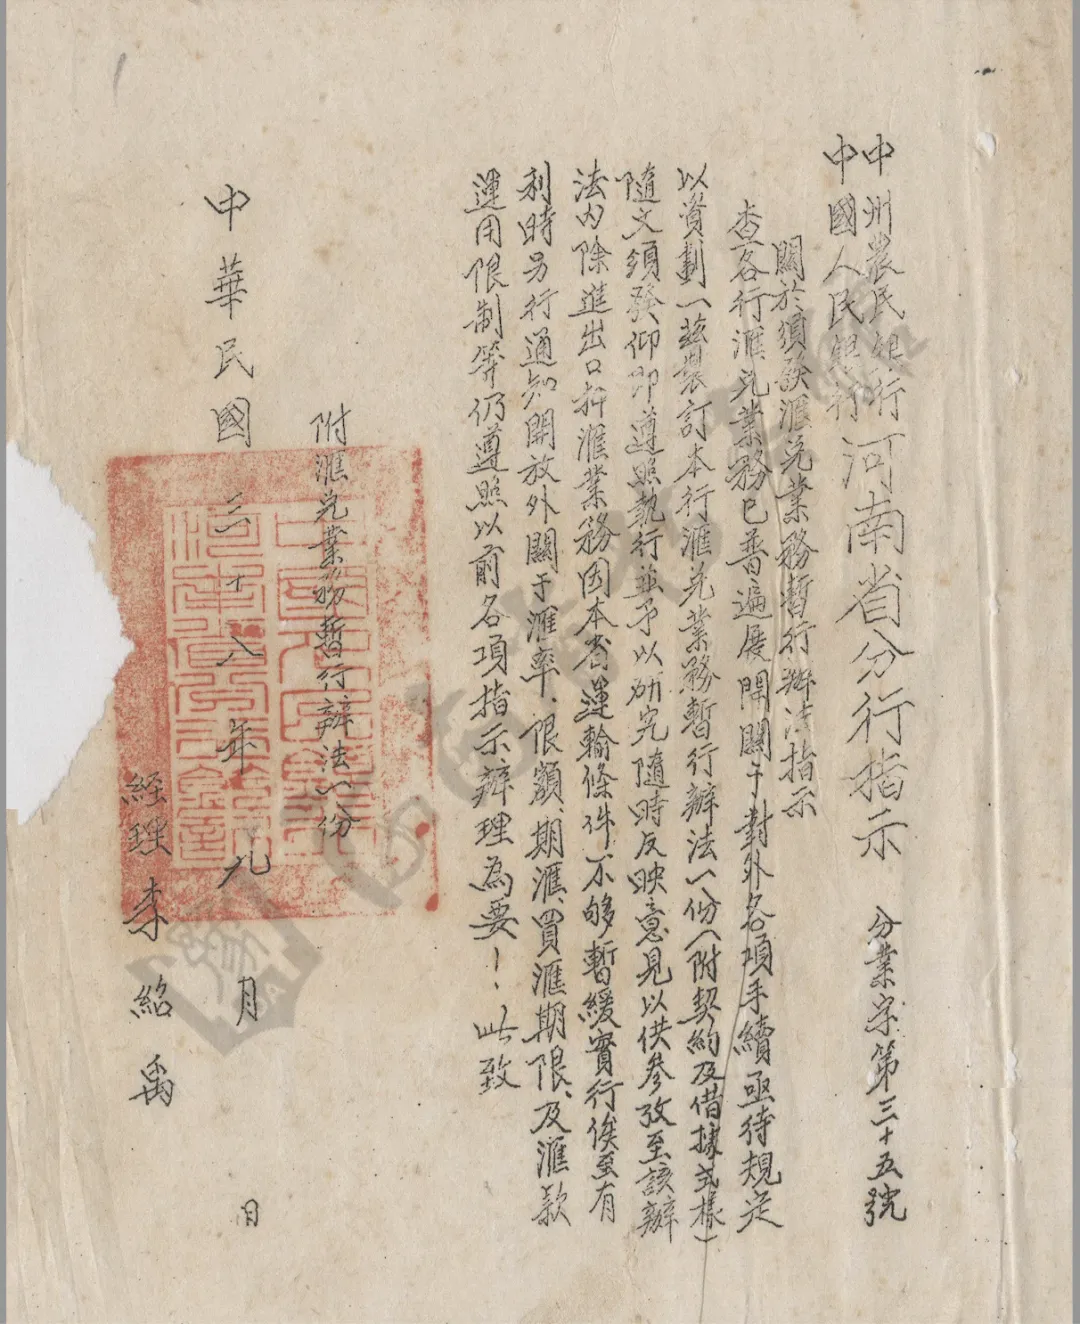 中州農民銀行
中國人民銀行
河南省分行指示 分業字第三十五號
關於頒發滙兌業務暫行辦法指示
查各行滙兌業務已普遍展開關于對外各項手續亟待規定
以資劃一茲製訂本行滙兌業務暫行辦法一份(附契約及借據式樣)
隨文頒發仰即遵照執行並予以研究隨時反映意見以供參攷至該辦
法內除進出口押滙業務因本省運輸條件不够暫緩實行俟至有
利時另行通知開放外關于滙率、限額、期滙、買滙期限、及滙款
運用限制等仍遵照以前各項指示辦理為要！此致
附滙兌業務暫行辦法一份
中華民國三十八年九月 日
經理李紹禹